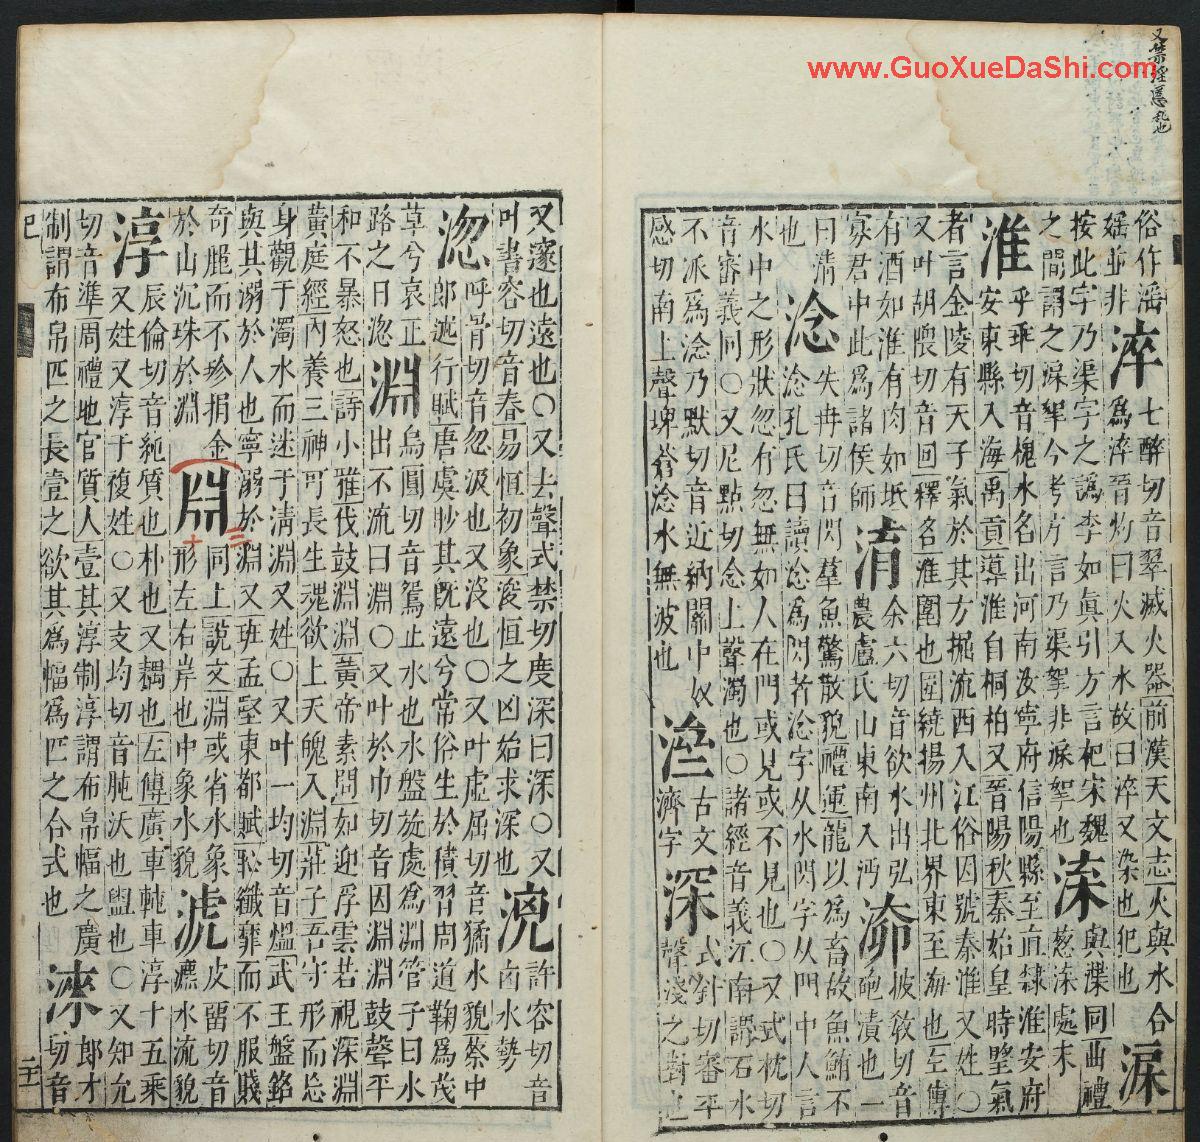 www.GuoXueDaShi.com
又禁淫慝
俗作滛
婬並非淬七醉切音翠滅火器前漢天文志火與水合
爲淬晉灼曰火入水故曰淬又染也犯也淚
按此字乃渠字之譌李如眞引方言杷宋魏與澲同曲禮
之間謂之淚挐今考方言乃渠挐非淚挐也渿葱渿處末
淮乎乖切音槐水名出河南汝寧府信陽縣至直隸淮安府
安東縣入海禹貢導淮自桐柏又晉陽秋秦始皇時望氣
者言金陵有天子氣於其方掘流西入江俗因號秦淮又姓○
又叶胡隈切音回釋名淮圍也圍繞揚州北界東至海也左傳
有酒如淮有肉如坻
寡君中此爲諸侯師淯余六切音欲水出弘農盧氏山東南入沔
淯披敎切音砲漬也一
曰淸
也淰失冉切音閃羣魚驚散貌禮運龍以爲畜故魚鮪不
淰孔氏曰讀淰爲閃者淰字从水閃字从門中人言
水中之形狀忽有忽無如人在門或見或不見也○又式枕切
音審義同○又尼點切念上聲濁也○諸經音義江南謂石水
不派爲淰乃默切音近納關中奴
感切南上聲埤蒼淰水無波也古文濟字深式針切審平聲淺之對也
又邃也遠也○又去聲式禁切度深曰深○又
叶書容切音春易恒初象浚恒之凶始求深也許容切音
淴呼骨切音忽汲也又沒也○又叶虛屈切音獝水貌蔡中
郎述行賦唐虞眇其旣遠兮常俗生於積習周道鞠爲茂
草兮哀正
路之日淴淵烏圓切音鴛止水也水盤旋處爲淵管子曰水
出不流曰淵○又叶於巾切音因淵淵鼓聲平
和不暴怒也詩小雅伐鼓淵淵黃帝素問如迎浮雲若視深淵
黃庭經內養三神可長生魂欲上天魄入淵莊子吾守形而忘
身觀于濁水而迷于淸淵又姓○又叶一均切音熅武王盤銘
與其溺於人也寧溺於淵又班孟堅東都賦恥纖靡而不服賤
奇麗而不珍捐金
於山沉珠於淵𣶒同上說文淵或省水象
形左右岸也中象水貌淲皮畱切音
瀌水流貌
三
十
淳辰倫切音純質也朴也又耦也左傳廣車軘車淳十五乘
又姓又淳于複姓○又支均切音肫沃也盥也○又知允
切音準周禮地官質人壹其淳制淳謂布帛幅之廣
制謂布帛匹之長壹之欲其爲幅爲匹之合式也淶郎才
切音
巳